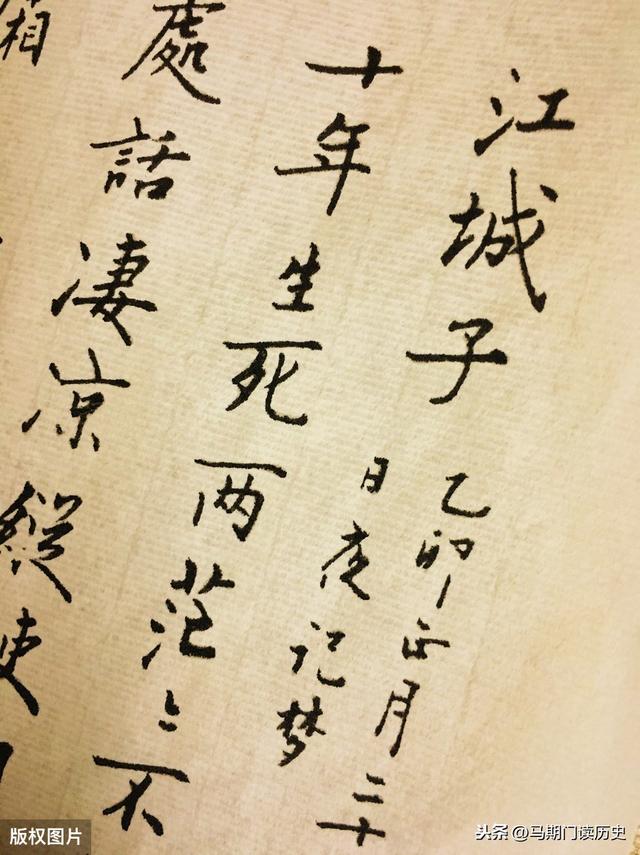 江城子
乙卯正月二十
日夜记梦
十年生死两茫〻不
處話凄凉縱使
霜
版权图片
头条@马期门读历史